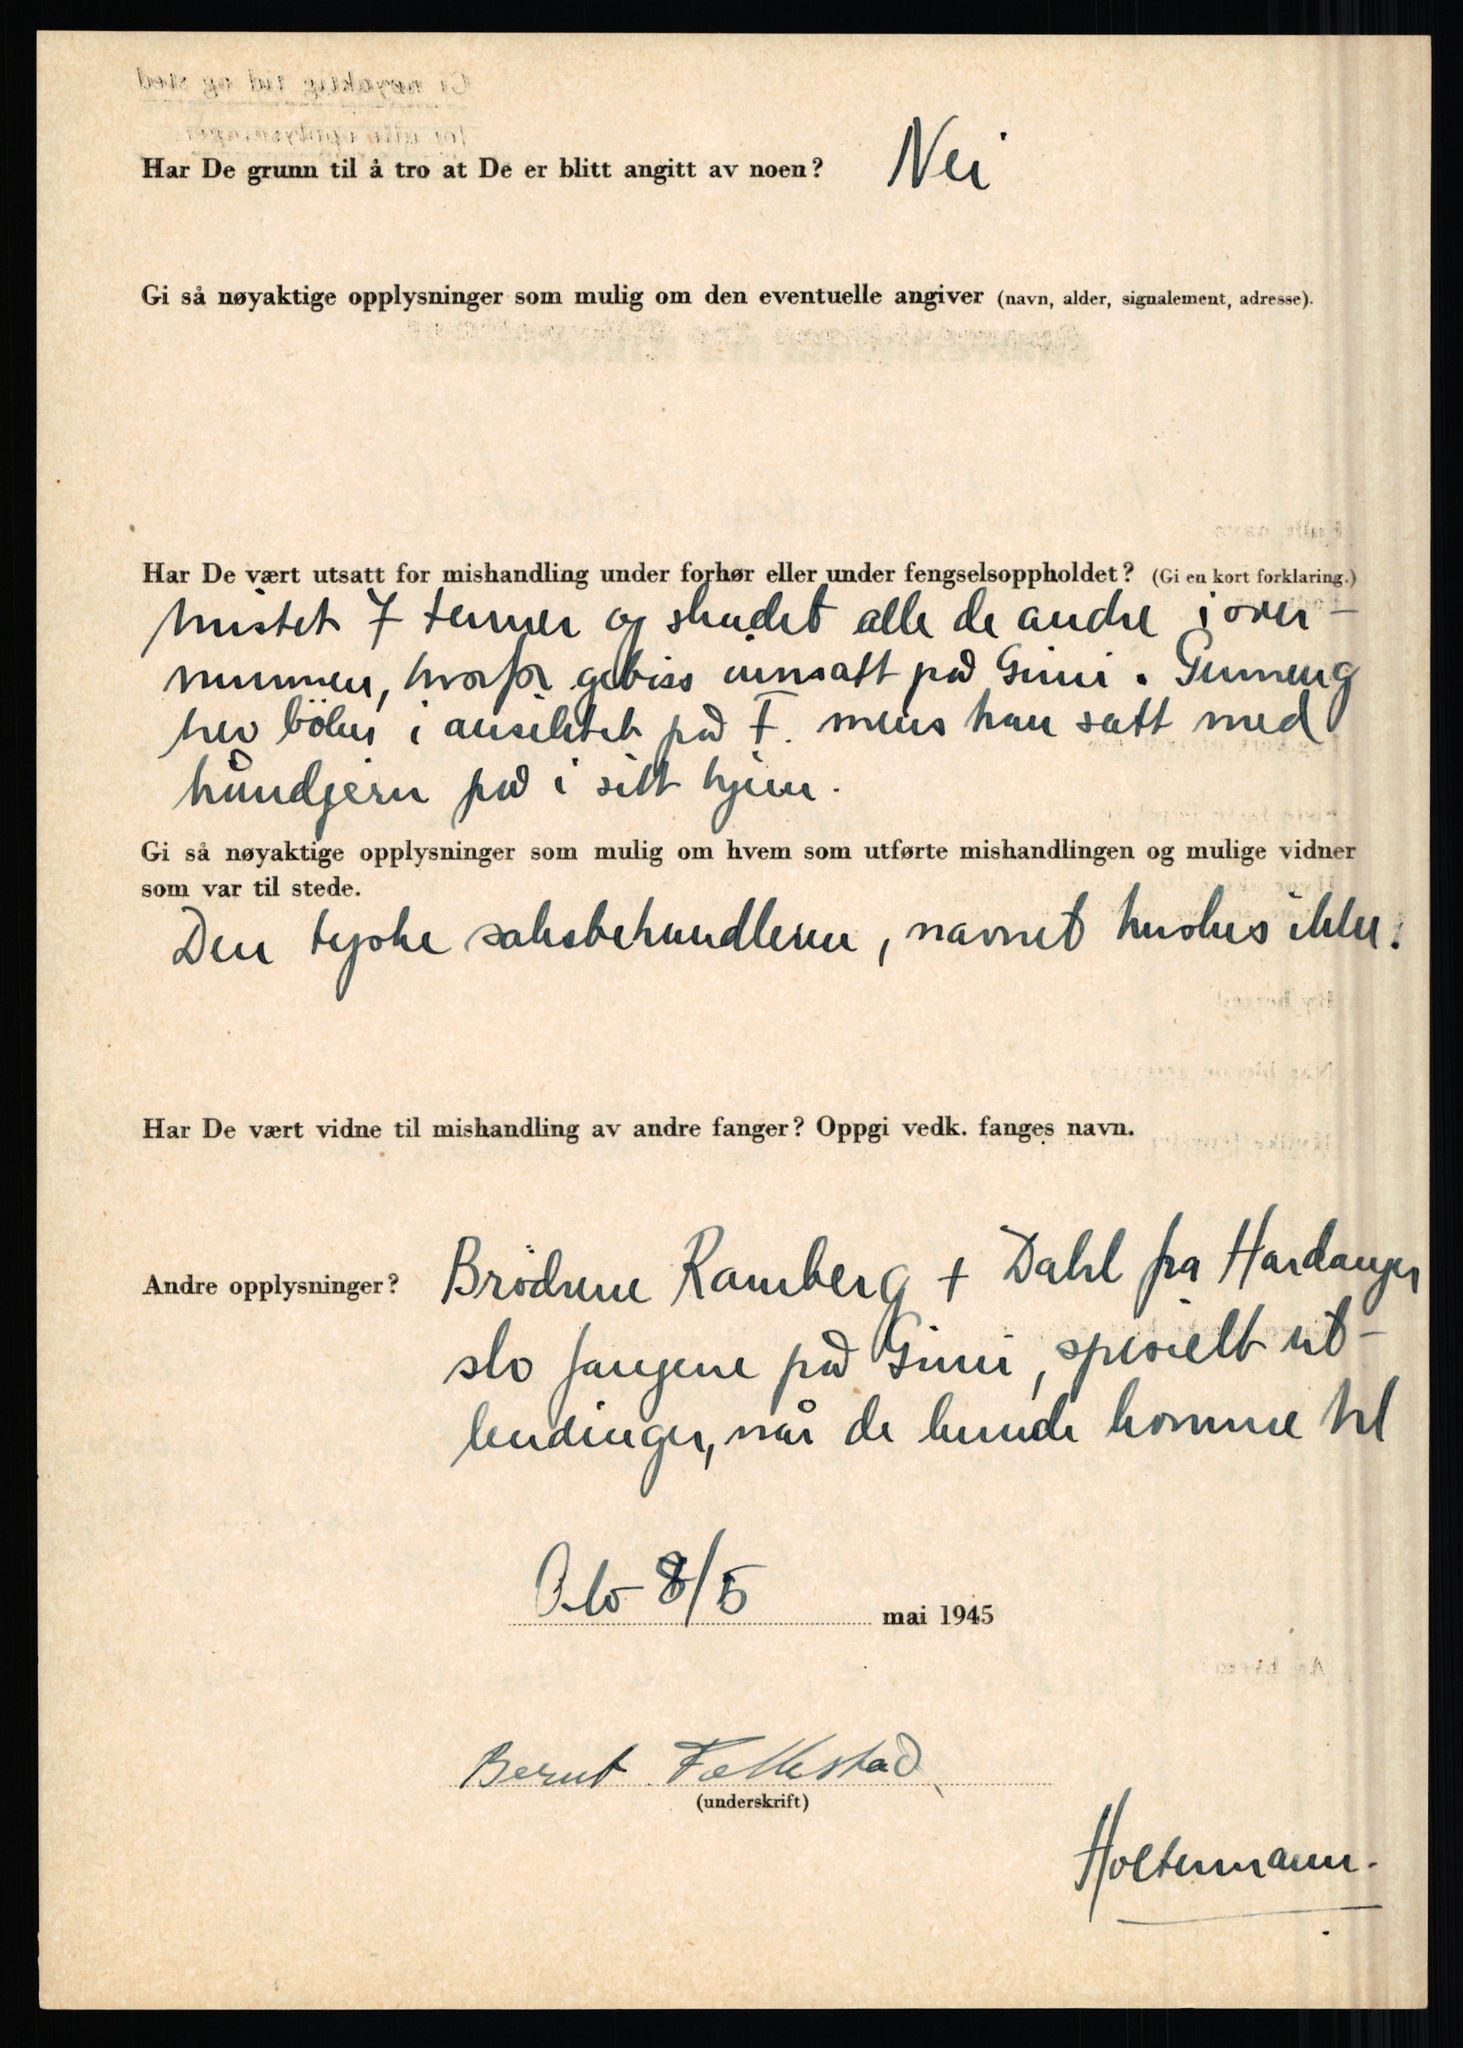 Har De grunn til å tro at De er blitt angitt av noen? Nei
Gi så nøyaktige opplysninger som mulig om den eventuelle angiver (navn, alder, signalement, adresse).
Har De vært utsatt for mishandling under forhør eller under fengselsoppholdet? (Gi en kort forklaring.)
Mistet 7 tenner og skadet alle de andre i over-
munnen, hvorfor gebiss innsatt på Grini.
fler bölur i ansiktet på F. mens han satt med
håndjern på i sitt hjem.
Gi så nøyaktige opplysninger som mulig om hvem som utførte mishandlingen og mulige vidner
som var til stede.
Den tyske saksbehandleren, navnet huskes ikke.
Har De vært vidne til mishandling av andre fanger? Oppgi vedk. fanges navn.
Andre opplysninger? Brödrene Ramberg + Dahl fra Hardanger
slo fangene på Grini, spesielt ut-
lendinger, når de kunde komme til
Oslo 8/5 mai 1945
Bernt Falkestad
(underskrift)
Holtermann.